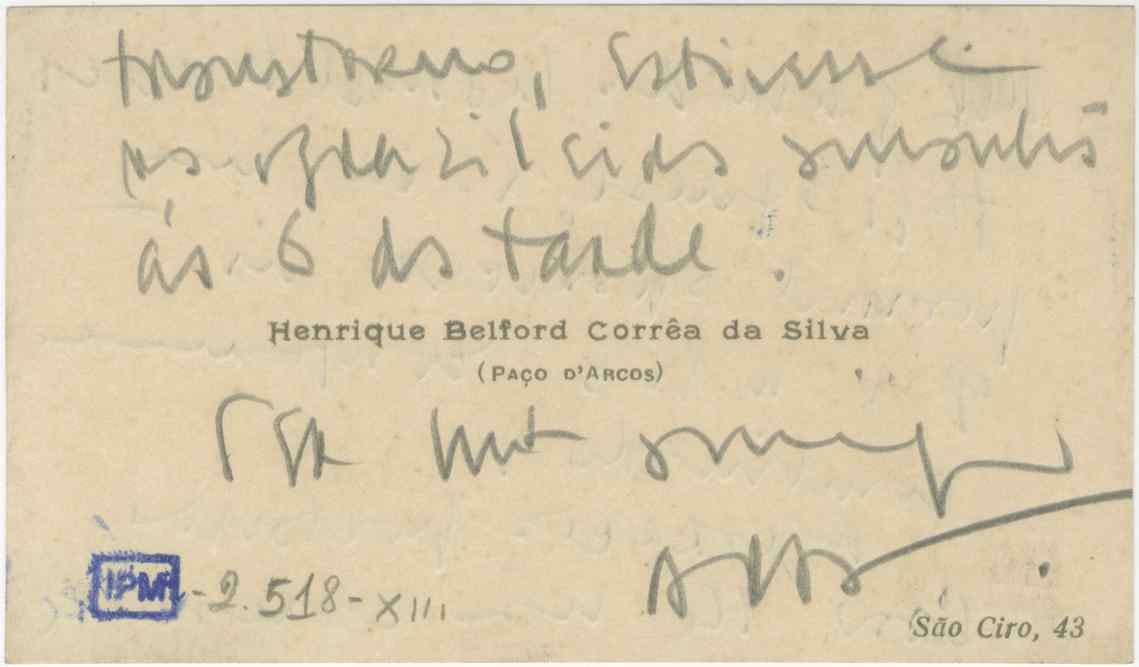 transtorno, estivesse
na Brazileira amanhã
ás 6 da tarde.
Henrique Belford Corrêa da Silva
(PAÇO D'ARCOS)
mt
IPM -2.518-XIII
São Ciro, 43